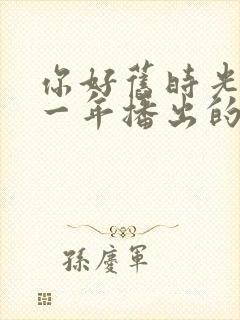 你好舊時光
一年播出的
孫慶軍